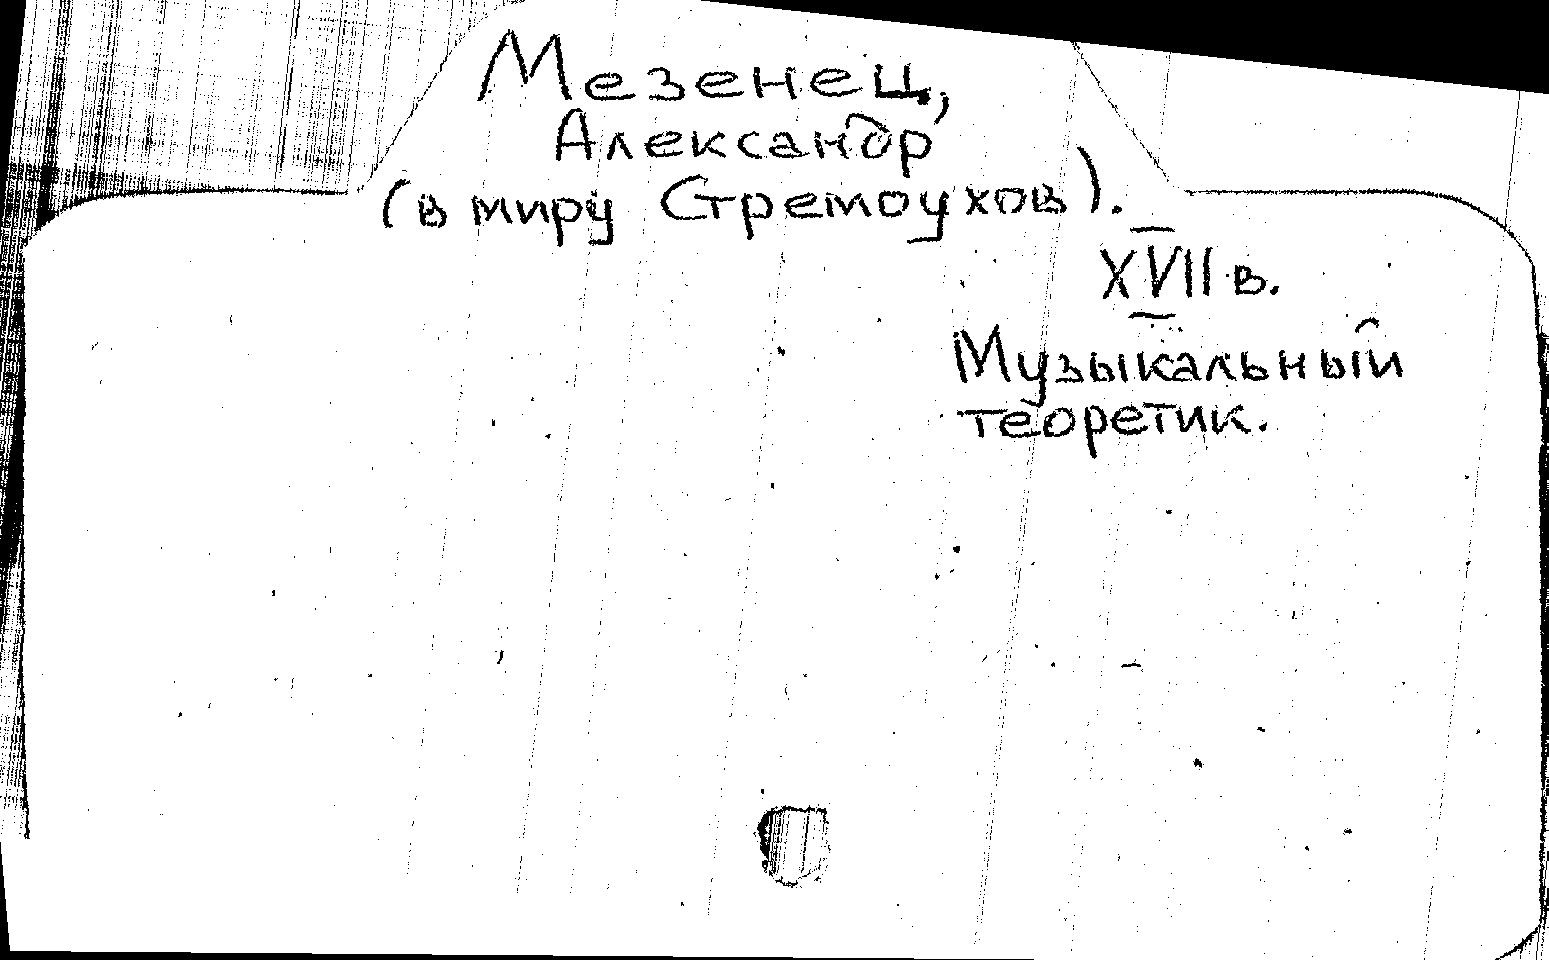 Мезенец,
Александр
(в миру Стремоухов).
XVII в.
Музыкальный
теоретик.